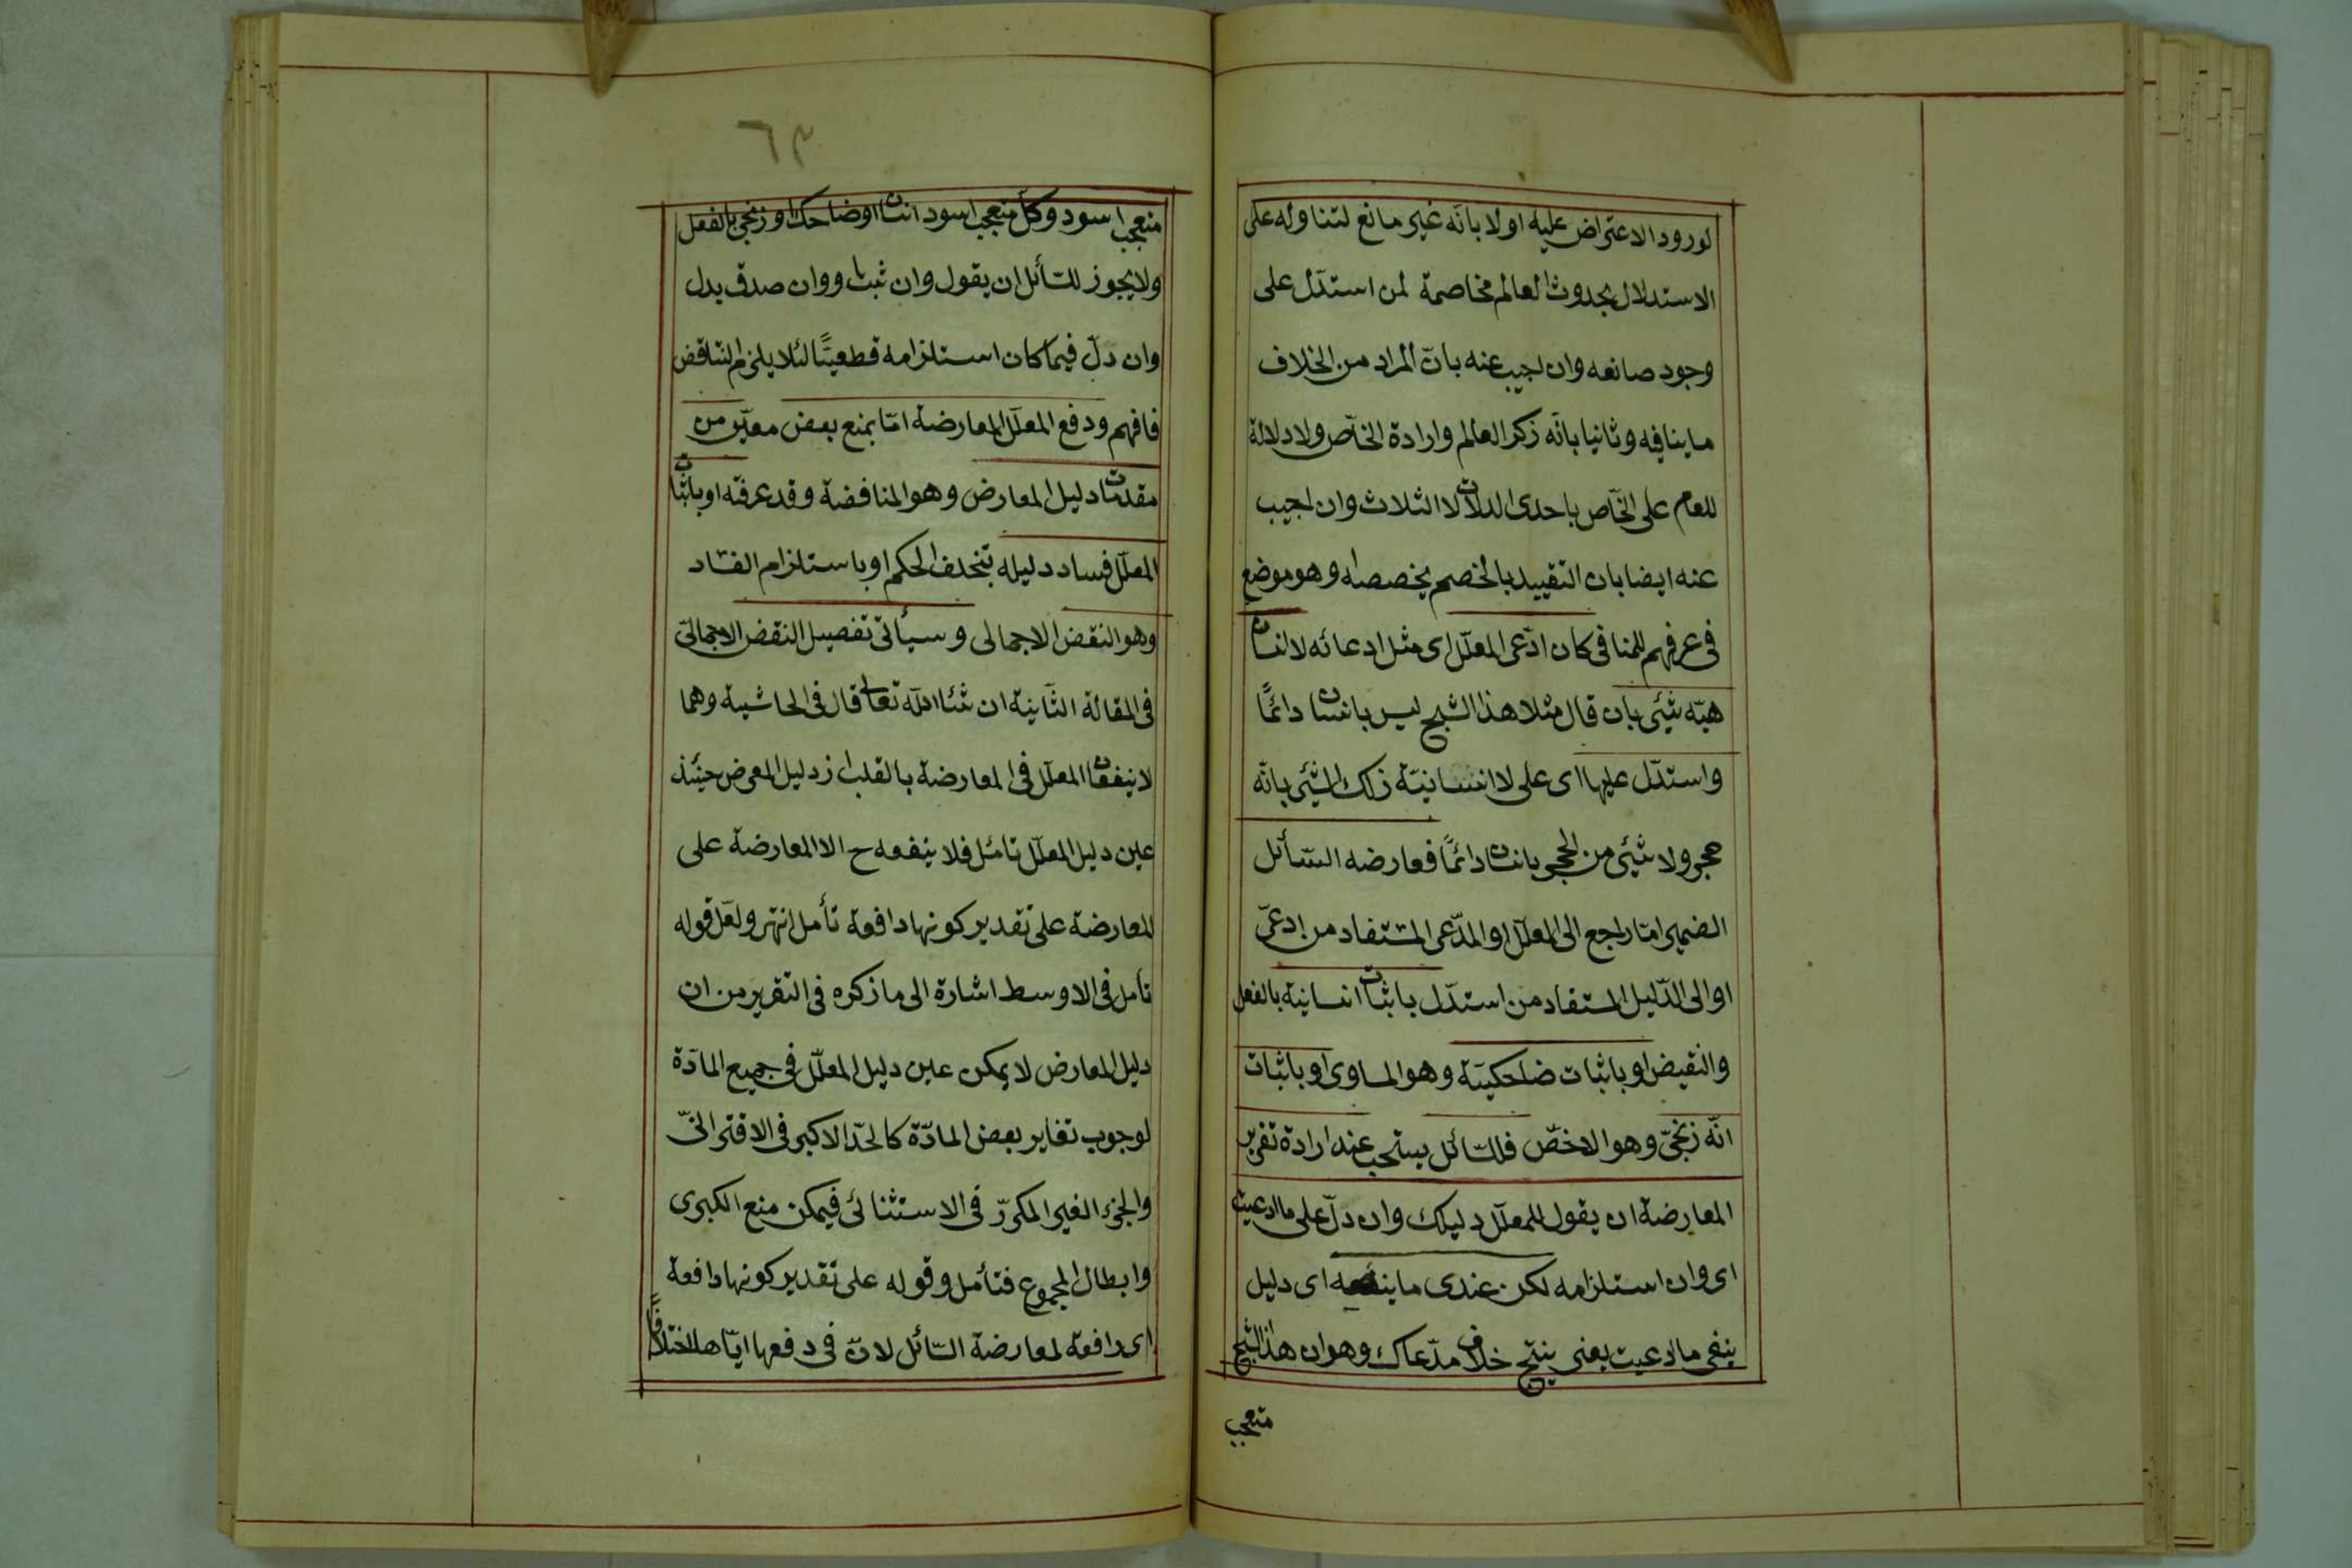 لورود الاعتراض عليه اولا بانّه غير مانع لتناوله على
الاستدلال بحدوث العالم مخاصمة لمن استدلّ على
وجود صانعه وان اجيب عنه بانّ المراد من الخلاف
ما ينافيه وثانيا بانّه ذكر العالم وارادة الخاّص ولا دلالة
للعام على الخاّص باحدى الدلالات الثلاث وان اجيب
عنه ايضا بان التقييد بالخصم يخصصه وهو موضع
فى عرفهم للمنافى كان ادّعى المعلّل اى مثل ادعائه لا انسان
هيّه شيئى بان قال مثلا هذا الشبح ليس بانسان دائمًا
واستدّل عليها اى على لا انسانيّة ذلك الشيئى بانّه
حجر ولا شيئى من الحجر بانسان دائمًا فعارضه السّائل
الضمير امّا راجع الى المعلّل او المدّعى المستفاد من ادعىّ
او الى الدّليل المستفاد من استدّل باثبات انسانية بالفعل
والنقيض او باثبات ضاحكيّة وهو المساوى او باثبات
انّه زنجىّ وهو الاخصّ فللسّائل يستحب عند ارادة تقرير
المعارضة ان يقول للمعلّل دليلك وان دلّ على ما ادعيت
اى وان استلزامه لكن عندى ما ينفيه اى دليل
ينفى ما ادعيت يعنى ينتج خلاف مدّعاك وهو ان هذا الشبح
متعجب
٦٣
متعجب اسود وكلّ متعجب اسود انسان او ضاحك او زنجى بالفعل
ولا يجوز للسّائل ان يقول وان ثبت او وان صدق بدل
وان دلّ فيما كان استلزامه قطعيّا لئلا يلزم التناقض
فافهم ودفع المعلّل المعارضة امّا بمنع بعض معيّن من
مقدمات دليل المعارض وهو المناقضة وقد عرفته او باثبات
المعلّل فساد دليله بتخلف الحكم او باستلزام الفساد
وهو النقض الاجمالى وسيأتى تفصيل النقض الاجمالىّ
فى المقالة الثّانية ان شاء الله تعالى قال فى الحاشية وهما
لا ينفعان المعلّل فى المعارضة بالقلب اذ دليل المعرض حينئذ
عين دليل المعلّل تائمل فلا ينفعه ح الا المعارضة على
المعارضة على تقدير كونها دافعة تأمل انتهى ولعّل قوله
تأمل فى الاوسط اشارة الى ما ذكره فى التقرير من ان
دليل المعارض لا يمكن عين دليل المعلّل فى جميع المادّة
لوجوب تغاير بعض المادّة كالحدّ الاكبر فى الاقترانىّ
والجزء الغير المكرّر فى الاستثنائى فيمكن منع الكبرى
وابطال المجموع فتأمل وقوله على تقدير كونها دافعة
اى دافعة لمعارضة السّائل لانّ فى دفعها ايّاها اختلافاً